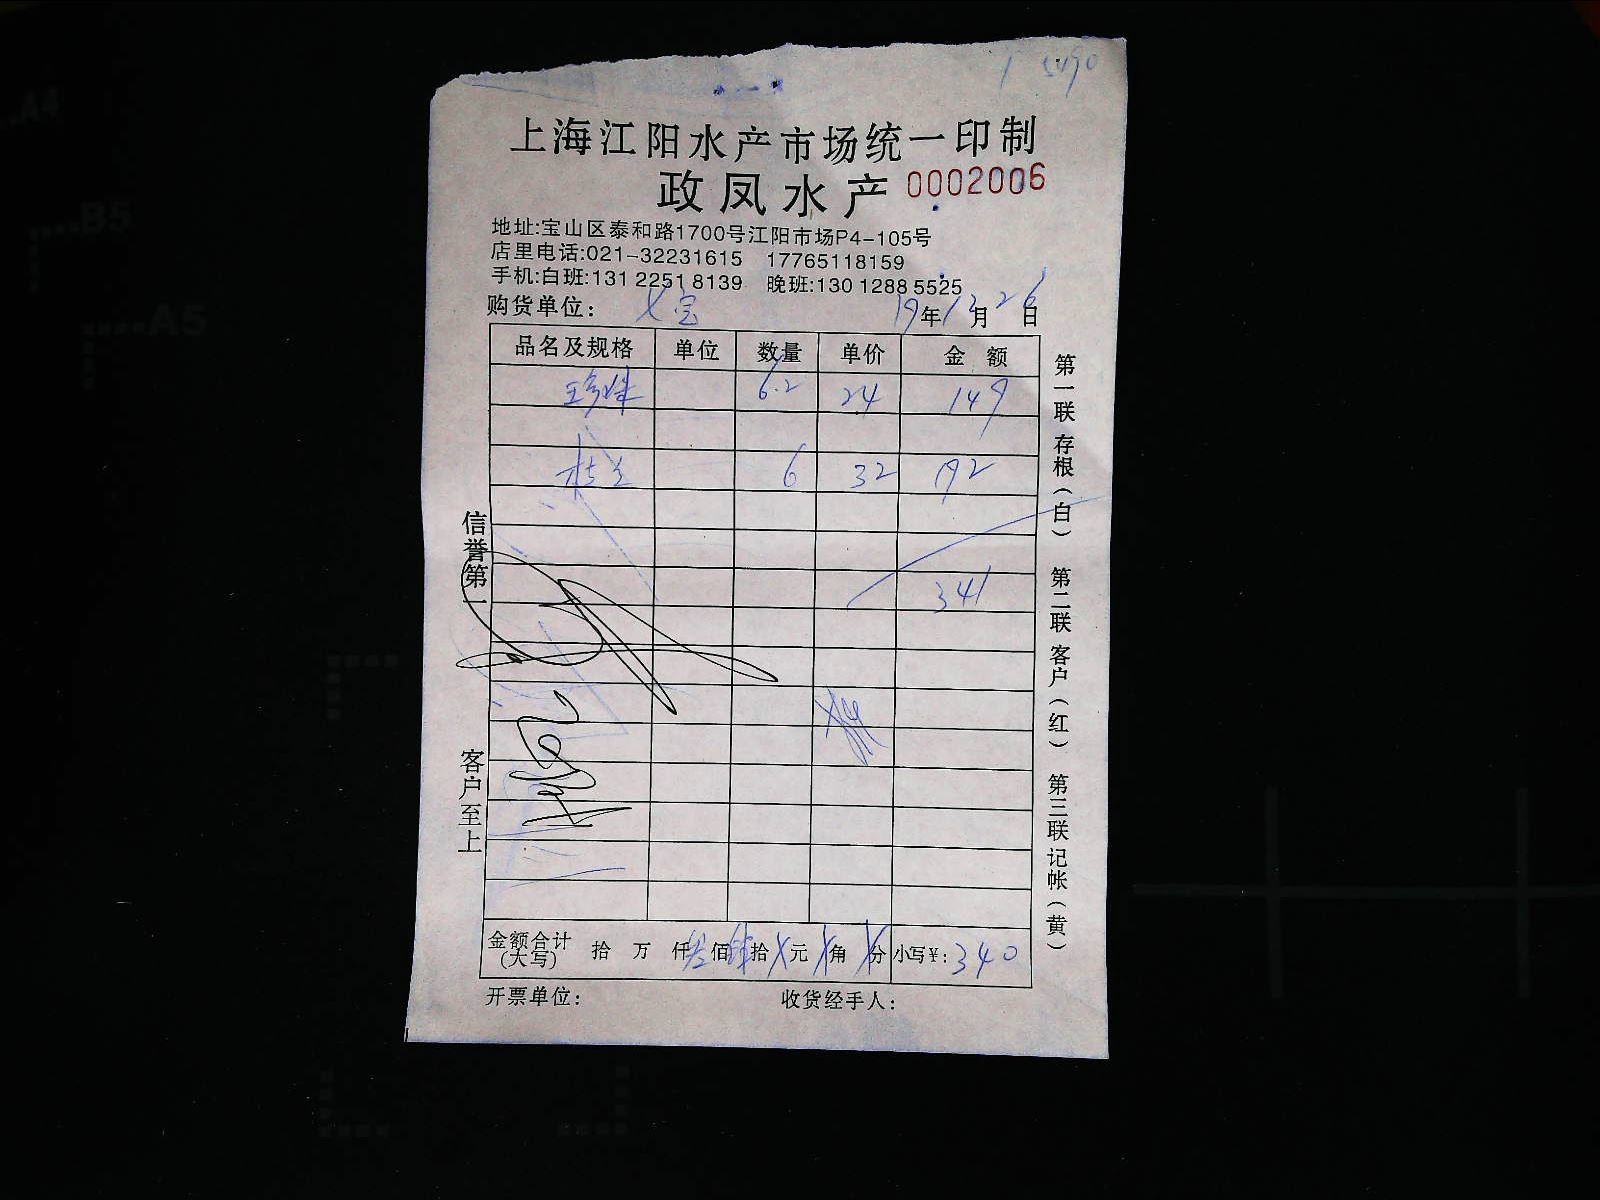 上海江阳水产市场统一印制
政凤水产 0002006
地址:宝山区泰和路1700号江阳市场P4-105号
店里电话:021-32231615 17765118159
手机:白班:131 2251 8139 晚班:130 1288 5525
购货单位: 宝 19年12月26日
品名及规格 单位 数量 单价 金额
珍珠 6.2 24 149
6 32 192
341
信誉第一
客户至上
第一联 存根(白) 第二联 客户(红) 第三联 记帐(黄)
金额合计(大写) 拾 万 仟叁佰肆拾 元 角 分 小写¥: 340
开票单位: 收货经手人: